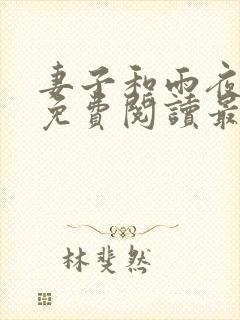 妻子和雨夜
免費閱讀最
林斐然